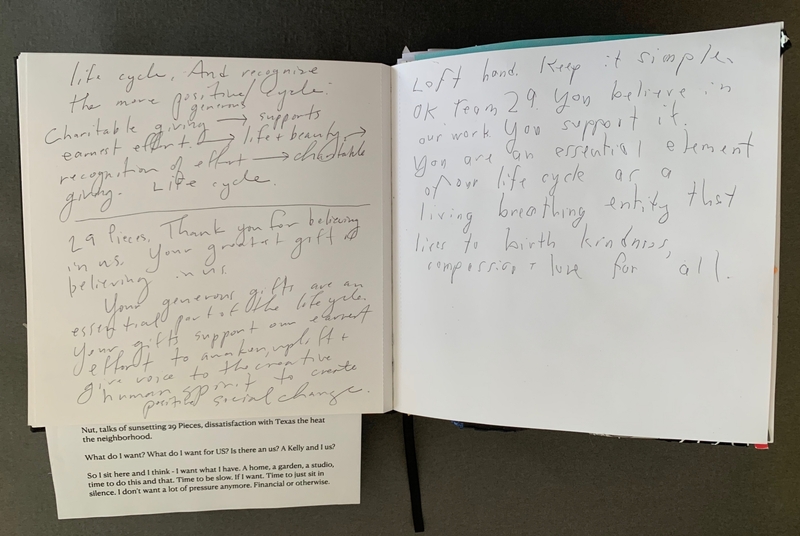 life cycle. And recognize
the more positive cycle:
generous
Charitable giving → supports
earnest effort. → life + beauty. →
recognition of effort → charitable
giving. Life cycle.
29 Pieces. Thank you for believing
in us. Your greatest gift is
believing in us.
Your generous gifts are an
essential part of the life cycle.
Your gifts support our earnest
effort to awaken, uplift +
give voice to the creative
human spirit to create
positive social change.
Nut, talks of sunsetting 29 Pieces, dissatisfaction with Texas the heat
the neighborhood.
What do I want? What do I want for US? Is there an us? A Kelly and I us?
So I sit here and I think - I want what I have. A home, a garden, a studio,
time to do this and that. Time to be slow. If I want. Time to just sit in
silence. I don't want a lot of pressure anymore. Financial or otherwise.
Loft hand. Keep it simple.
OK Team 29. You believe in
our work. You support it.
You are an essential element
of our life cycle as a
living breathing entity that
lives to birth kindness,
compassion + love for all.